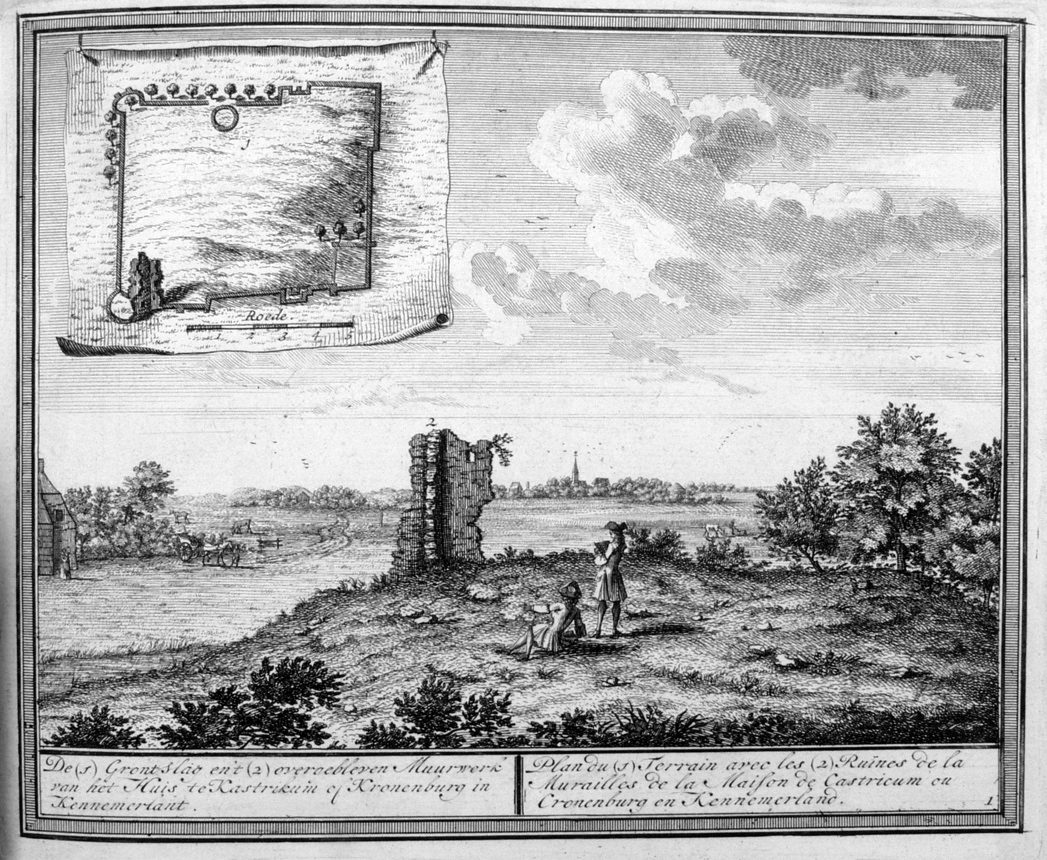 1
Roede.
1 2 3 4 5
2
De (1) Grontslag en't (2) overgebleven Muurwerk
van het Huis te Kastrikum of Kronenburg in
Kennemerlant.
Plan du (1) Terrain avec les (2) Ruines de la
Murailles de la Maison de Castricum ou
Cronenburg en Kennemerland.
1